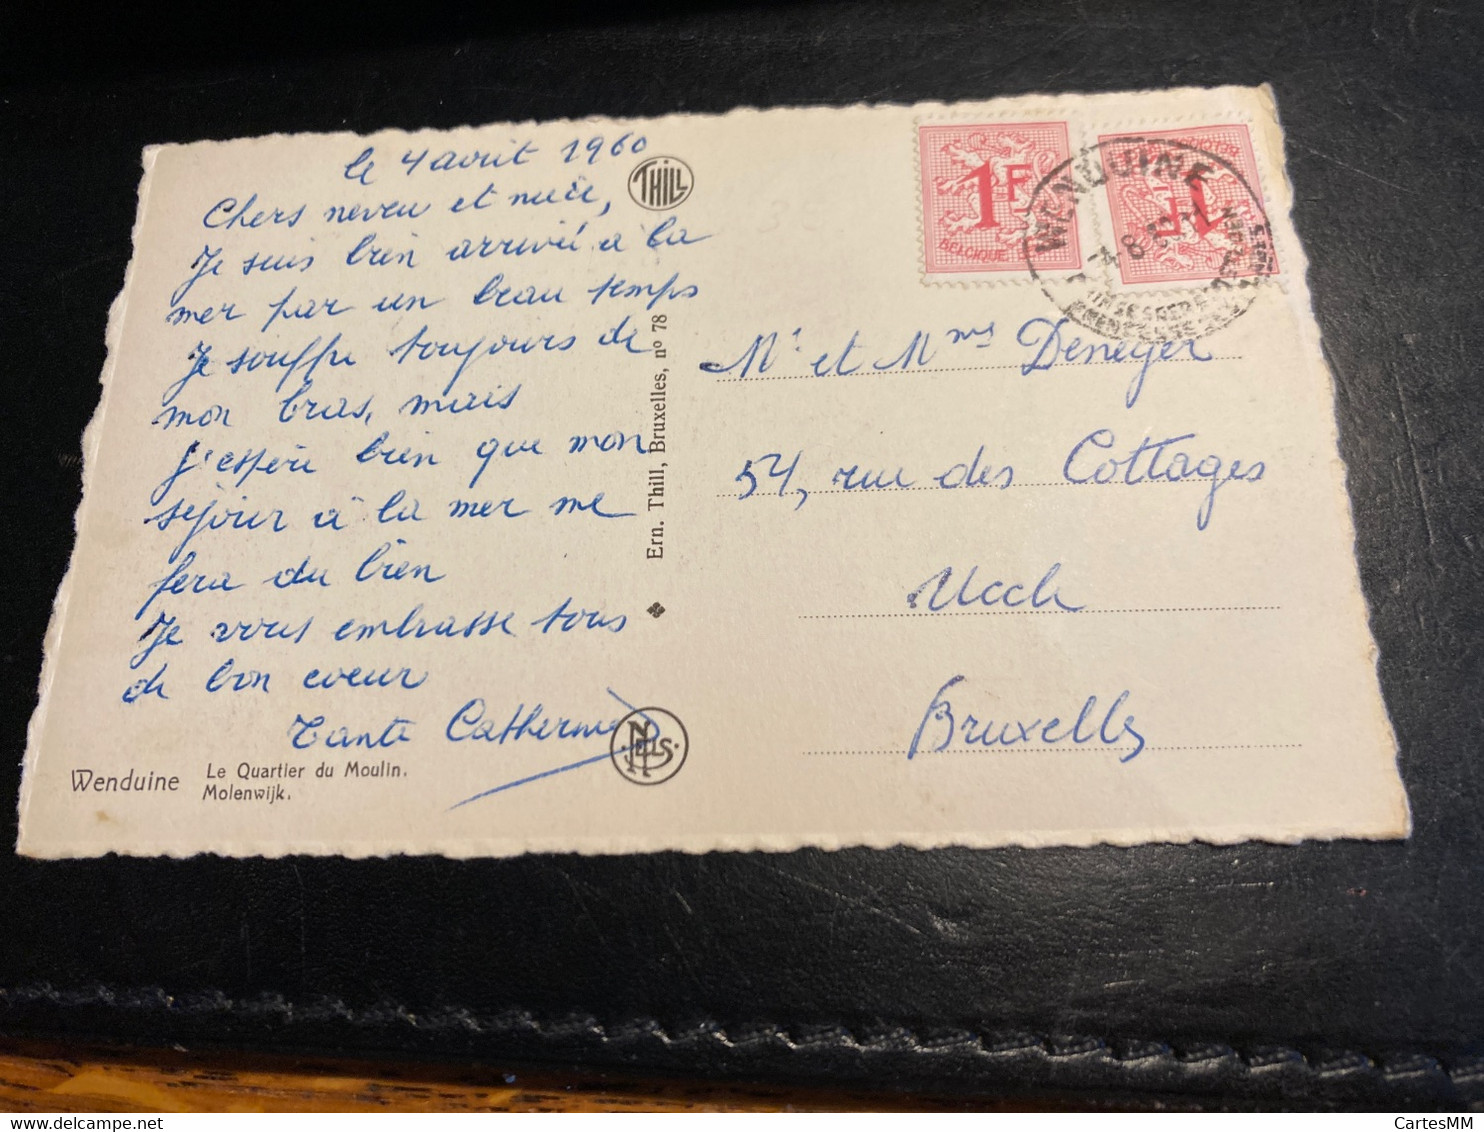 le 4 août 1960
Chers neveu et nièce,
Je suis bien arrivé à la
mer par un beau temps
Je souffre toujours de
mon bras, mais
j'espère bien que mon
séjour à la mer me
fera du bien
Je vous embrasse tous
de bon coeur
Tante Catherine
Wenduine Le Quartier du Moulin.
Molenwijk.
THILL
Ern. Thill, Bruxelles, nº 78
NELS
1F
BELGIQUE
1F
WENDUINE
4-8
Mr et Mme Deneyer
54, rue des Cottages
Uccle
Bruxelles
CartesMM